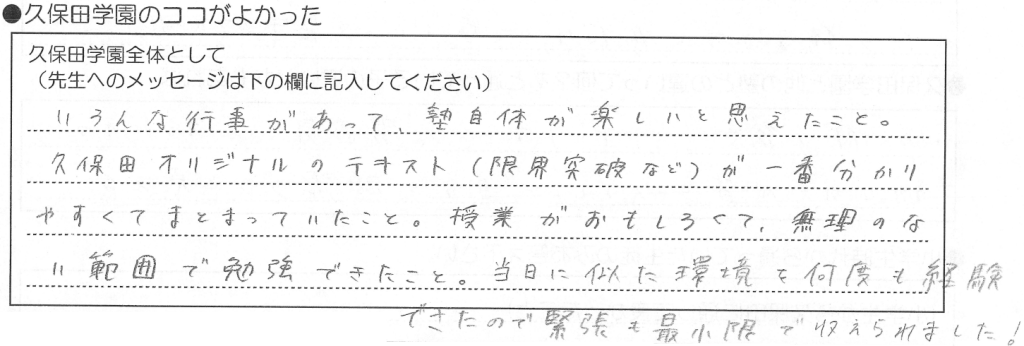 ●久保田学園のココがよかった
久保田学園全体として
（先生へのメッセージは下の欄に記入してください）
いろんな行事があって、塾自体が楽しいと思えたこと。
久保田オリジナルのテキスト（限界突破など）が一番分かり
やすくてまとまっていたこと。授業がおもしろくて、無理のな
い範囲で勉強できたこと。当日に似た環境を何度も経験
できたので緊張も最小限で収えられました！